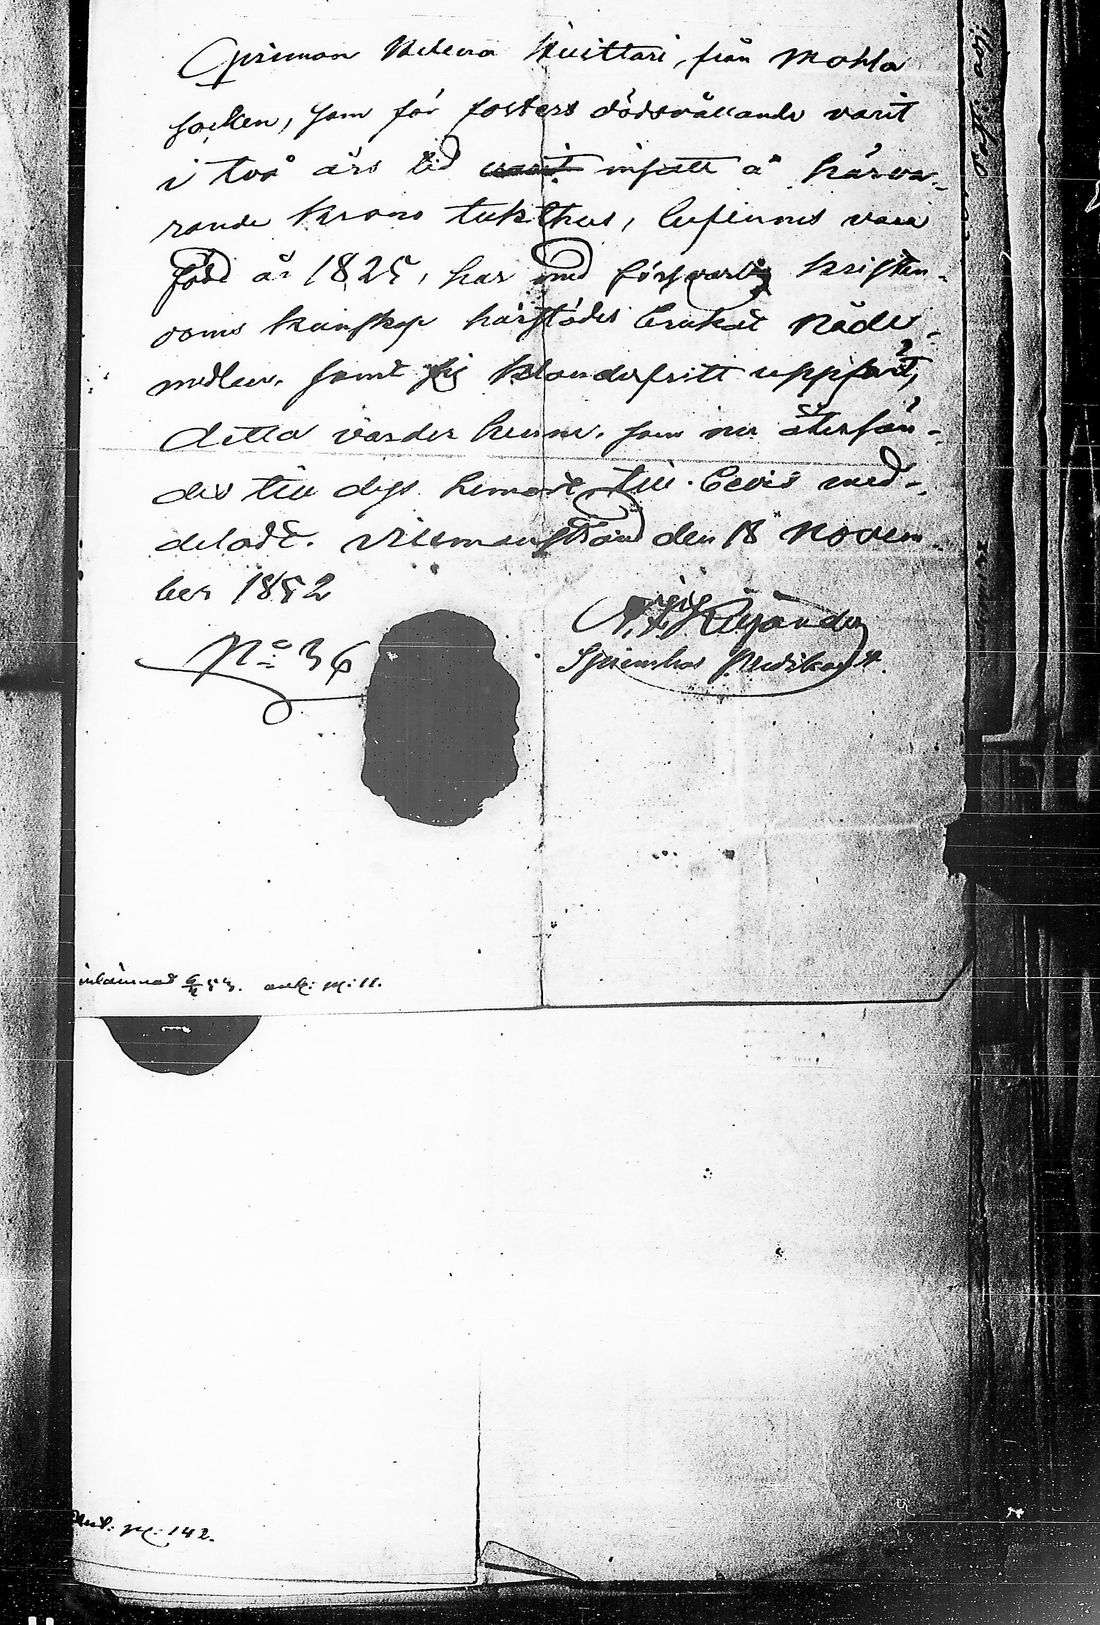 Qvinnan Helena Kuittari, från Mohla
socken, som för fosters dödsvållande varit
i två års tid varit insatt å härva-
rande Krono tukthus, befinnes vara
född år 1825, har med försvarlig kristen-
doms kunskap härstädes brukat Nåde-
medlen, samt sig klanderfritt uppfört,
detta varder henne, som nu återsän-
des till dess hemort, till bevis med-
deladt. Villmanstrand den 18 Novem-
ber 1852
Spinnhus Predikant.
No 36
inlämnad 53. ank: N: 11.
N: 142.